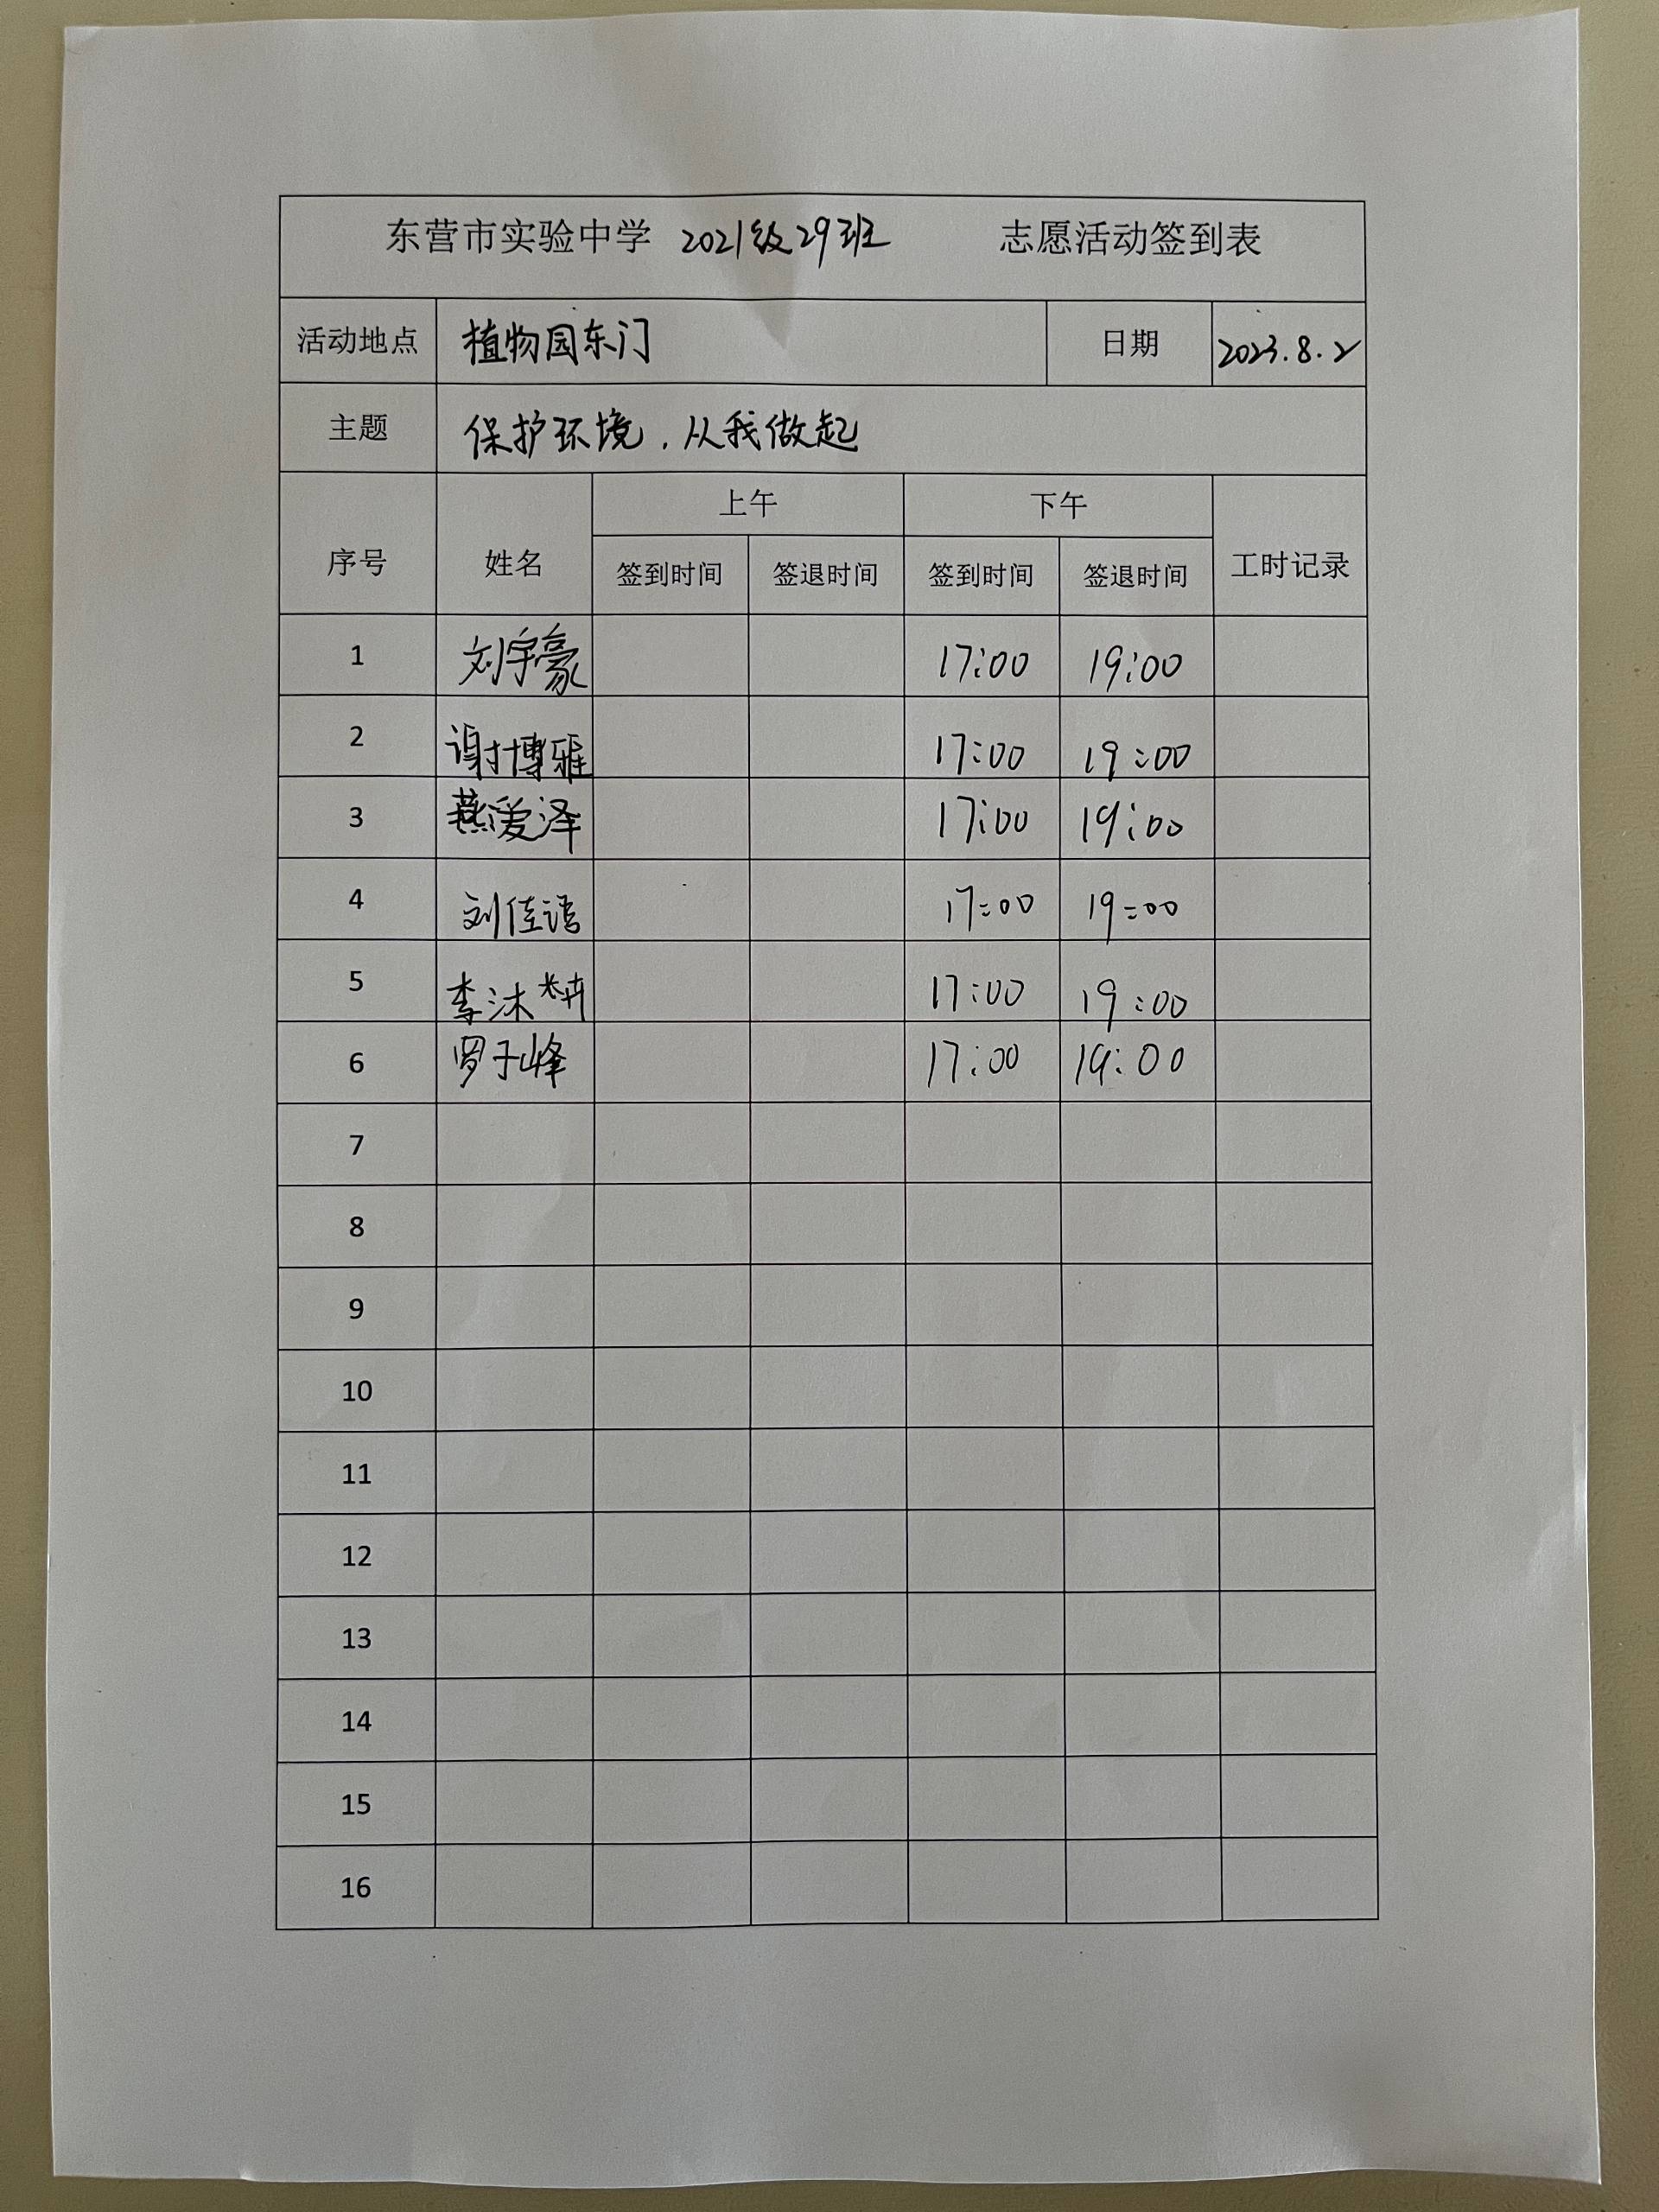 东营市实验中学 2021级29班 志愿活动签到表
活动地点 植物园东门 日期 2023.8.2
主题 保护环境，从我做起
上午 下午
序号 姓名 签到时间 签退时间 签到时间 签退时间 工时记录
1 刘宇豪 17:00 19:00
2 谢博雅 17:00 19:00
3 燕爱泽 17:00 19:00
4 刘佳 17:00 19:00
5 李沐 17:00 19:00
6 罗于峰 17:00 19:00
7
8
9
10
11
12
13
14
15
16